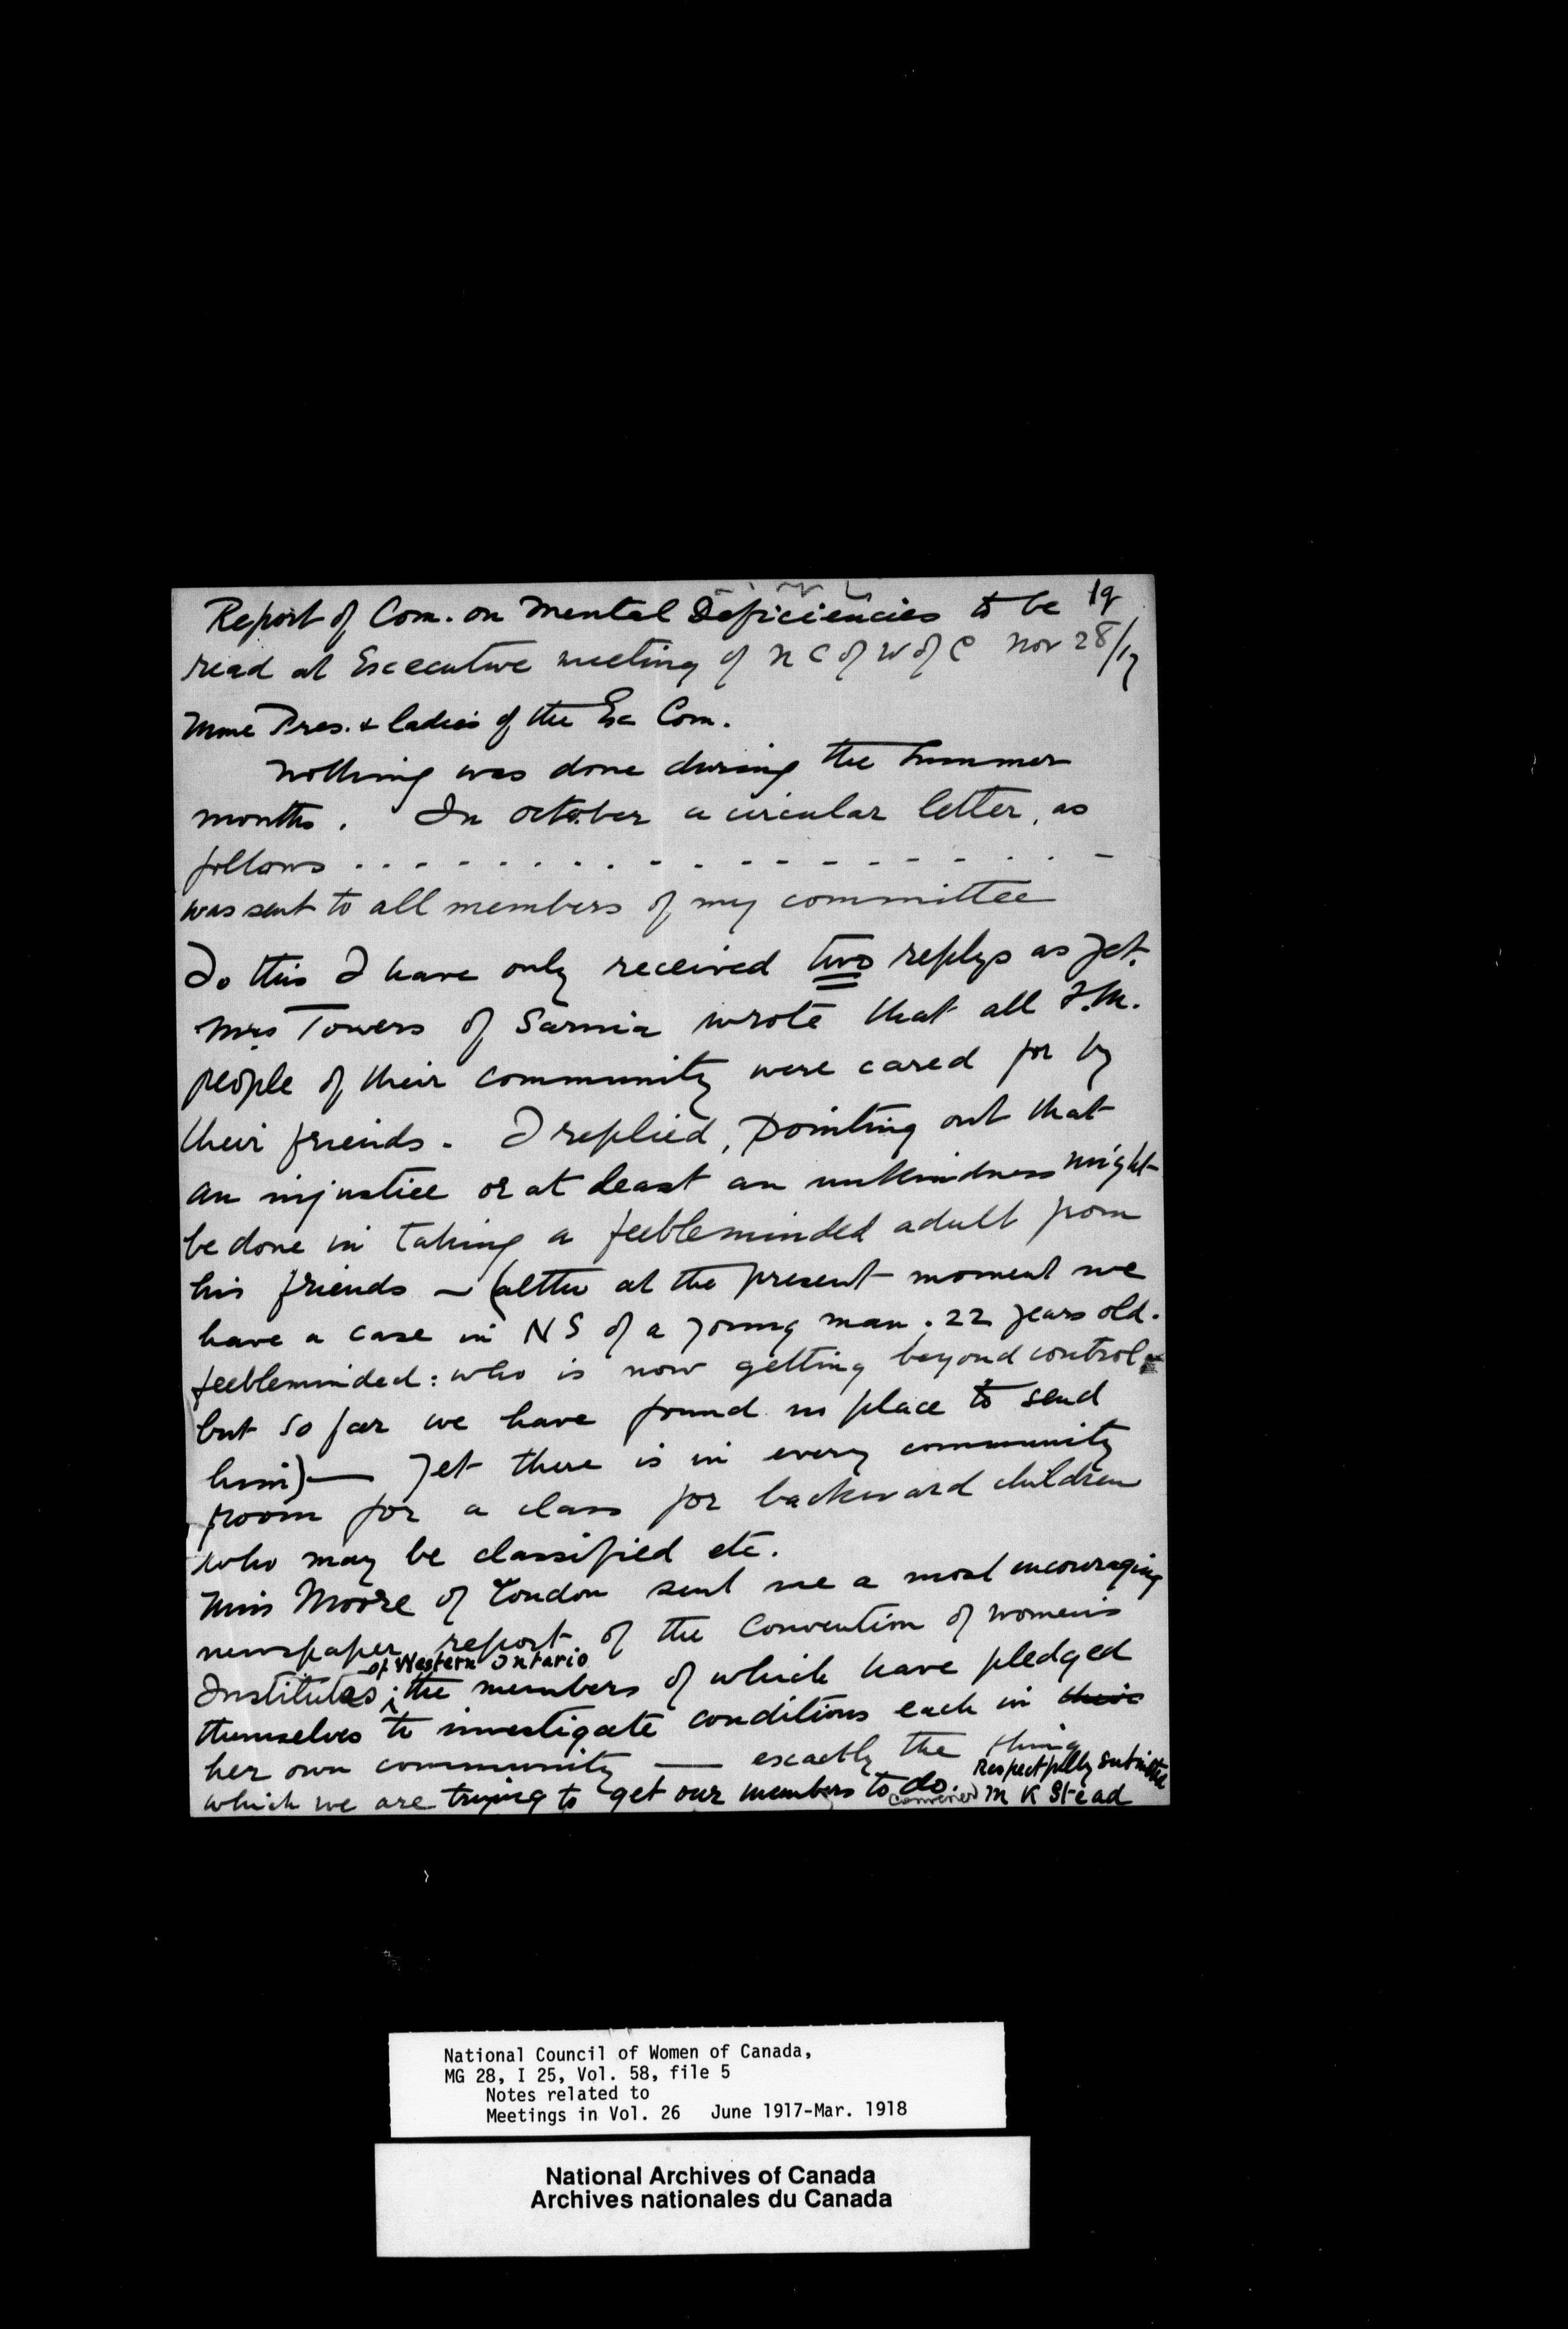 Report of Com. on Mental Deficiencies to be 19
read at Executive meeting of N C of W of C Nov 28/17
Mme Pres. & ladies of the Ex Com.
Nothing was done during the summer
months. In october a circular letter, as
follows . . - - - . . . . - - - - - - . . -
was sent to all members of my committee
To this I have only received two replys as yet.
Mrs Towers of Sarnia wrote that all F.M.
people of their community were cared for by
their friends - I replied, pointing out that
an injustice or at least an unkindness might
be done in taking a feebleminded adult from
his friends — (altho at the present moment we
have a case in N S of a young man . 22 years old.
feebleminded : who is now getting beyond control
but so far we have found no place to send
him) — yet there is in every community
room for a class for backward children
who may be classified etc.
Miss Moore of London sent me a most encouraging
newspaper report of the Convention of women's
of Western Ontario
Institutes; the members of which have pledged
themselves to investigate conditions each in their
her own community — exactly the thing
which we are trying to get our members to do.
Respectfully submitted
convener M K Stead
National Council of Women of Canada,
MG 28, I 25, Vol. 58, file 5
Notes related to
Meetings in Vol. 26 June 1917-Mar. 1918
National Archives of Canada
Archives nationales du Canada